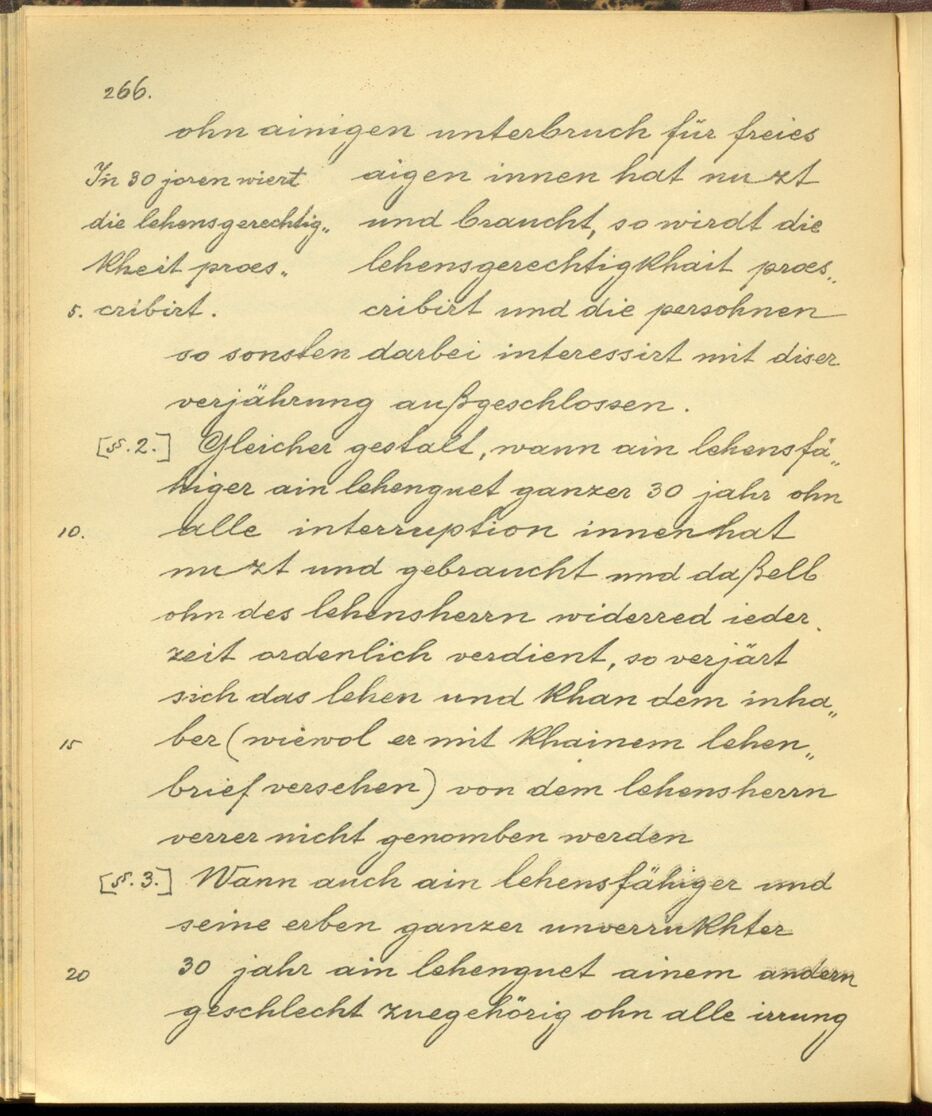 266.
ohn ainigen unterbruch für freies
In 30 joren wiert
aigen innen hat nuzt
die lehensgerechtig„
und braucht, so wirdt die
kheit praes„
lehensgerechtigkhait praes„
5. cribirt.
cribirt und die persohnen
so sonsten darbei interessirt mit diser
verjährung außgeschlossen.
[§. 2.] Gleicher gestalt, wann ain lehensfä„
higer ain lehenguet ganzer 30 jahr ohn
10. alle interruption innenhat
nuzt und gebraucht und daßelb
ohn des lehensherrn widerred ieder„
zeit ordenlich verdient, so verjärt
sich das lehen und khan dem inha„
15 ber (wiewol er mit khainem lehen„
brief versehen) von dem lehensherrn
verrer nicht genomben werden
[§. 3.] Wann auch ain lehensfähiger und
seine erben ganzer unverrukhter
20 30 jahr ain lehenguet ainem andern
geschlecht zuegehörig ohn alle irrung